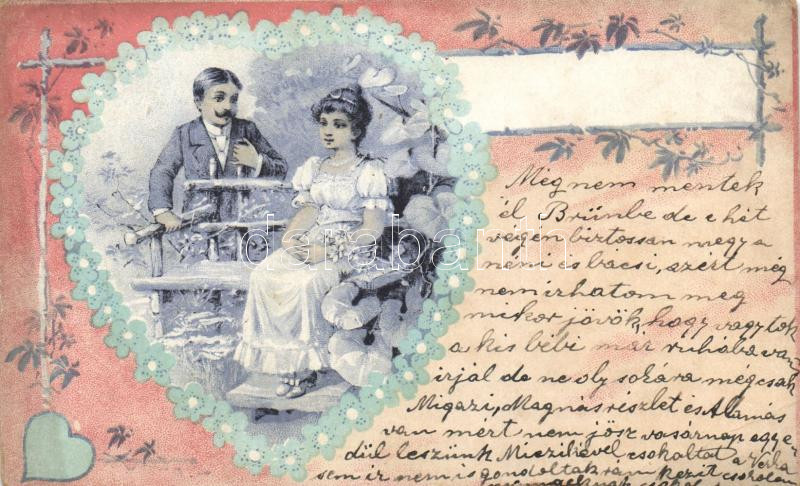 Mégnem mentek
él Brünbe de e hét
végen biztossan megy a
neni is bacsi, azért még
nem irhatom meg
mikor jövök, hogy vagytok
a kis bébi már ruhába van
irjál de ne oly sokára mégcsak
Migazi, Magnás részlet és Alamás
van mert nem jösz vasárnap egye
dül leszünk Miczikével csokoltat a Verka
sem ir nem is gondoltak rám kezit csokolom
darabanth